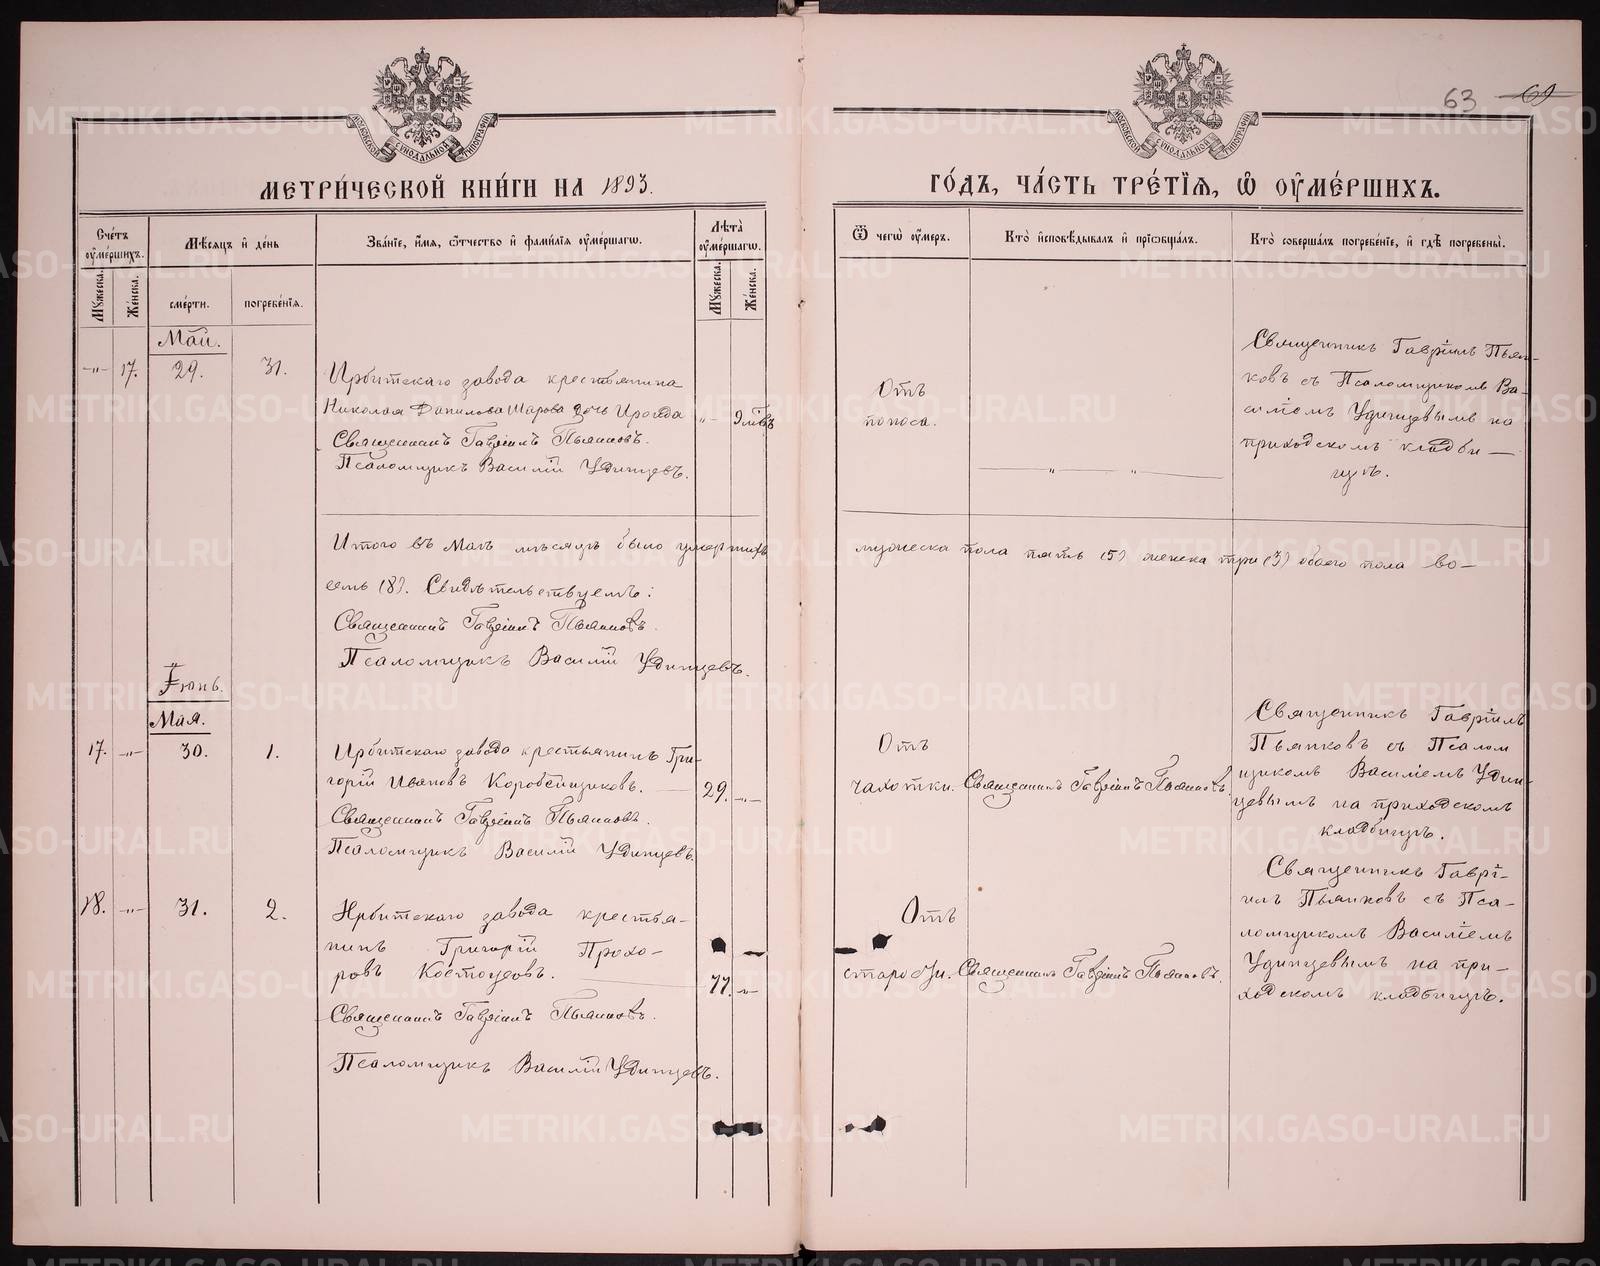 63 69
МОСКОВСКОЙ СУНОДАЛЬНОЙ ТИПОГРАФІИ
МОСКОВСКОЙ СУНОДАЛЬНОЙ ТИПОГРАФІИ
МЕТРИ́ЧЕСКОЙ КНИ́ГИ НА 1893.
ГО́ДЪ, ЧА́СТЬ ТРЕ́ТІѦ, Ѡ҆ ОУ҆МЕ́РШИХЪ.
Сче́тъ оу҆ме́ршихъ.
Мѣ́сяцъ и҆ де́нь
Зва́нїе, и҆́мя, ѻ҆́тчество и҆ фами́лїя оу҆ме́ршагѡ.
Лѣта̀ оу҆ме́ршагѡ.
Ѿ чегѡ̀ оу҆́меръ.
Кто̀ и҆сповѣ́дывалъ и҆ прїѡбща́лъ.
Кто̀ соверша́лъ погребе́нїе, и҆ гдѣ̀ погребены̀.
Мꙋжеска.
Же́нска.
сме́рти.
погребе́нїя.
Мꙋжеска.
Же́нска.
Май.
-„- 17. 29. 31.
Ирбитскаго завода крестьянина
Николая Данилова Шарова дочь Ироида
Священникъ Гавріилъ Пьянковъ.
Псаломщикъ Василій Удинцевъ.
„- 9 мѣ
Отъ
поноса.
„ „
Священникъ Гавріилъ Пьян-
ковъ съ Псаломщикомъ Ва-
силіемъ Удинцевымъ на
приходскомъ кладби-
щѣ.
Итого въ Маѣ мѣсяцѣ было умершихъ
мужеска пола пять (5) женска три (3) обоего пола во-
семь (8). Свидѣтельствуемъ:
Священникъ Гавріилъ Пьянковъ.
Псаломщикъ Василій Удинцевъ.
Іюнь.
Мая.
17. -„- 30. 1.
Ирбитскаго завода крестьянинъ Гри-
горій Ивановъ Коробейщиковъ.
Священникъ Гавріилъ Пьянковъ.
Псаломщикъ Василій Удинцевъ.
29. -„-
Отъ
чахотки.
Священникъ Гавріилъ Пьянковъ.
Священникъ Гавріилъ
Пьянковъ съ Псалом
щикомъ Василіемъ Удин-
цевымъ на приходскомъ
кладбищѣ.
18. -„- 31. 2.
Ирбитскаго завода крестья-
нинъ Григорій Прохо-
ровъ Костоусовъ.
Священникъ Гавріилъ Пьянковъ.
Псаломщикъ Василій Удинцевъ.
77. -„-
Отъ
старости.
Священникъ Гавріилъ Пьянковъ.
Священникъ Гаврі-
илъ Пьянковъ съ Пса-
ломщикомъ Василіемъ
Удинцевымъ на при-
ходскомъ кладбищѣ.
METRIKI.GASO-URAL.RU